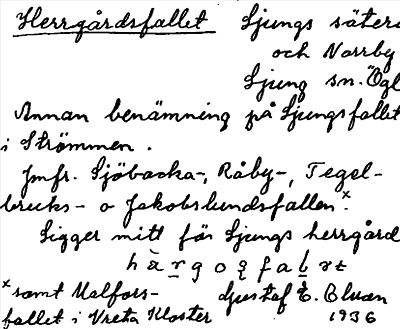 Herrgårdsfallet Ljungs säteri
och Norrby
Ljung sn. Ögl
Annan benämning på Ljungsfallet
i Strömmen.
Jmfr. Sjöbacka-, Råby-, Tegel-
bruks- o Jakobslundsfallen x.
Ligger mitt för Ljungs herrgård
x samt Malfors- Gustaf E. Bluan
fallet i Vreta Kloster 1936